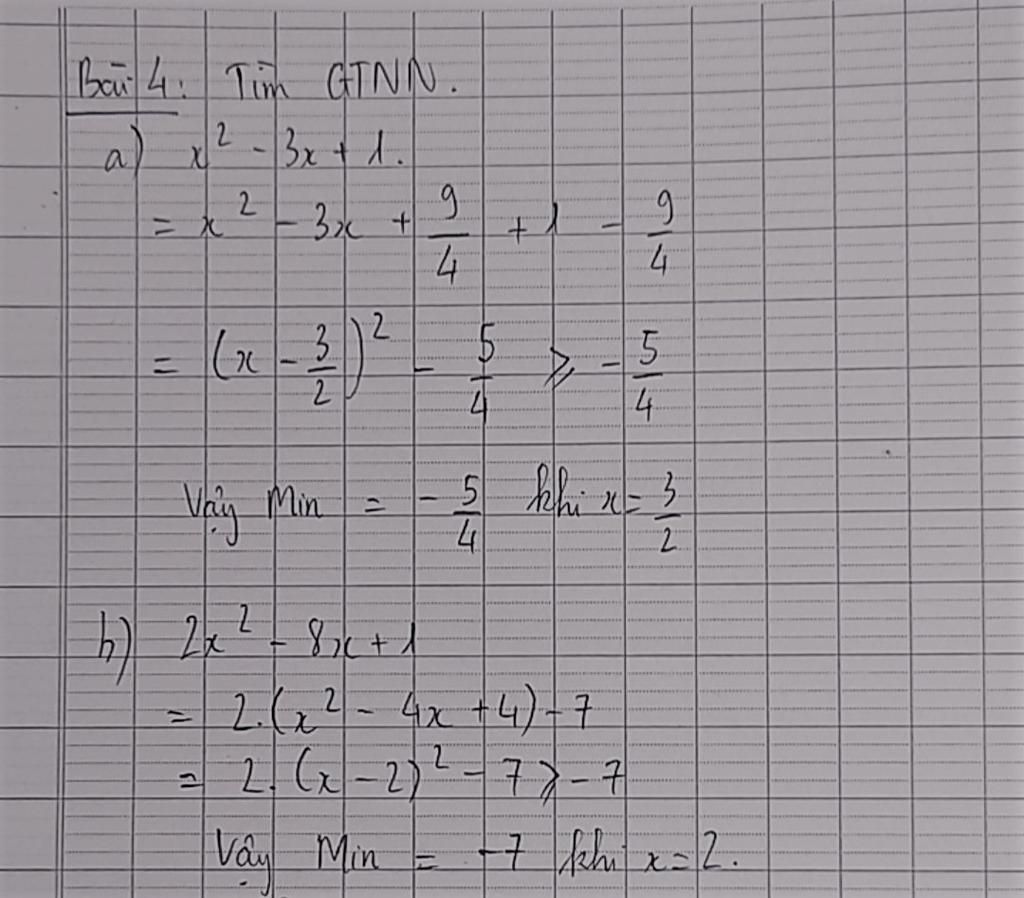 Bài 4: Tìm GTNN.
a) x² - 3x + 1.
= x² - 3x + 9/4 + 1 - 9/4
= (x - 3/2)² - 5/4 ⩾ - 5/4
Vậy Min = - 5/4 khi x = 3/2
b) 2x² - 8x + 1
= 2.(x² - 4x + 4) - 7
= 2.(x - 2)² - 7 ⩾ - 7
Vậy Min = -7 khi x = 2.